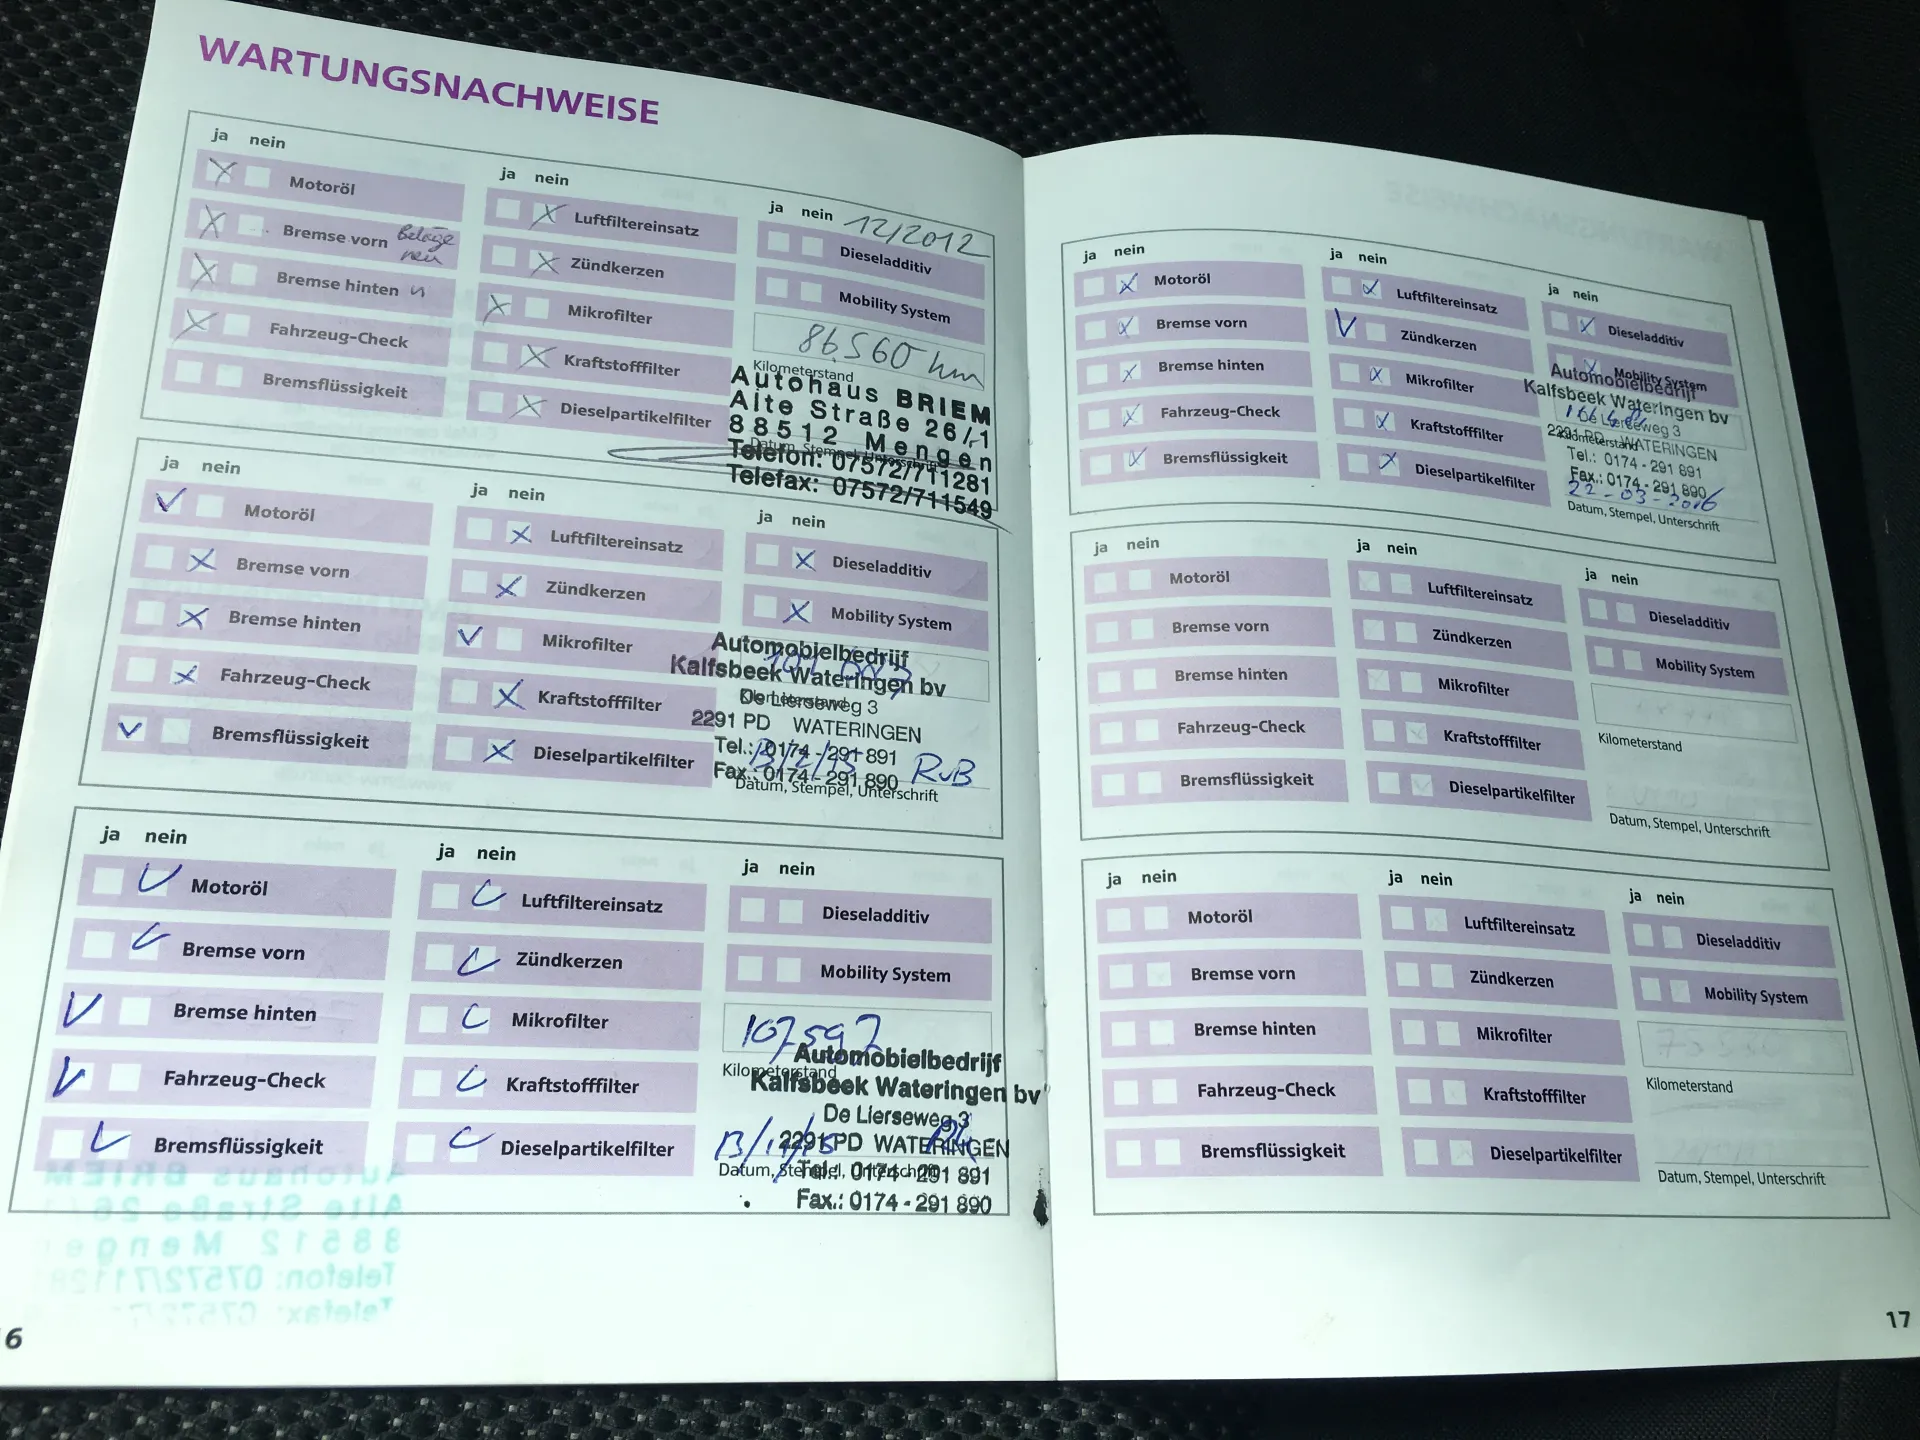 WARTUNGSNACHWEISE
ja nein
Motoröl
Bremse vorn Beläge neu
Bremse hinten
Fahrzeug-Check
Bremsflüssigkeit
ja nein
Luftfiltereinsatz
Zündkerzen
Mikrofilter
Kraftstofffilter
Dieselpartikelfilter
ja nein 12/2012
Dieseladditiv
Mobility System
86.560 km
Kilometerstand
Autohaus BRIEM
Alte Straße 26/1
88512 Mengen
Datum, Stempel, Unterschrift
Telefon: 07572/711281
Telefax: 07572/711549
ja nein
Motoröl
Bremse vorn
Bremse hinten
Fahrzeug-Check
Bremsflüssigkeit
ja nein
Luftfiltereinsatz
Zündkerzen
Mikrofilter
Kraftstofffilter
Dieselpartikelfilter
ja nein
Dieseladditiv
Mobility System
Automobielbedrijf
Kalfsbeek Wateringen bv
Kilometerstand
De Lierseweg 3
2291 PD WATERINGEN
Tel.: 0174 - 291 891
Fax.: 0174 - 291 890
RvB
Datum, Stempel, Unterschrift
ja nein
Motoröl
Bremse vorn
Bremse hinten
Fahrzeug-Check
Bremsflüssigkeit
ja nein
Luftfiltereinsatz
Zündkerzen
Mikrofilter
Kraftstofffilter
Dieselpartikelfilter
ja nein
Dieseladditiv
Mobility System
107597
Automobielbedrijf
Kilometerstand
Kalfsbeek Wateringen bv
De Lierseweg 3
2291 PD WATERINGEN
Datum, Stempel, Unterschrift
Tel.: 0174 - 291 891
Fax.: 0174 - 291 890
16
ja nein
Motoröl
Bremse vorn
Bremse hinten
Fahrzeug-Check
Bremsflüssigkeit
ja nein
Luftfiltereinsatz
Zündkerzen
Mikrofilter
Kraftstofffilter
Dieselpartikelfilter
ja nein
Dieseladditiv
Mobility System
Automobielbedrijf
Kalfsbeek Wateringen bv
De Lierseweg 3
Kilometerstand
2291 PD WATERINGEN
Tel.: 0174 - 291 891
Fax.: 0174 - 291 890
22-03-2016
Datum, Stempel, Unterschrift
ja nein
Motoröl
Bremse vorn
Bremse hinten
Fahrzeug-Check
Bremsflüssigkeit
ja nein
Luftfiltereinsatz
Zündkerzen
Mikrofilter
Kraftstofffilter
Dieselpartikelfilter
ja nein
Dieseladditiv
Mobility System
Kilometerstand
Datum, Stempel, Unterschrift
ja nein
Motoröl
Bremse vorn
Bremse hinten
Fahrzeug-Check
Bremsflüssigkeit
ja nein
Luftfiltereinsatz
Zündkerzen
Mikrofilter
Kraftstofffilter
Dieselpartikelfilter
ja nein
Dieseladditiv
Mobility System
Kilometerstand
Datum, Stempel, Unterschrift
17